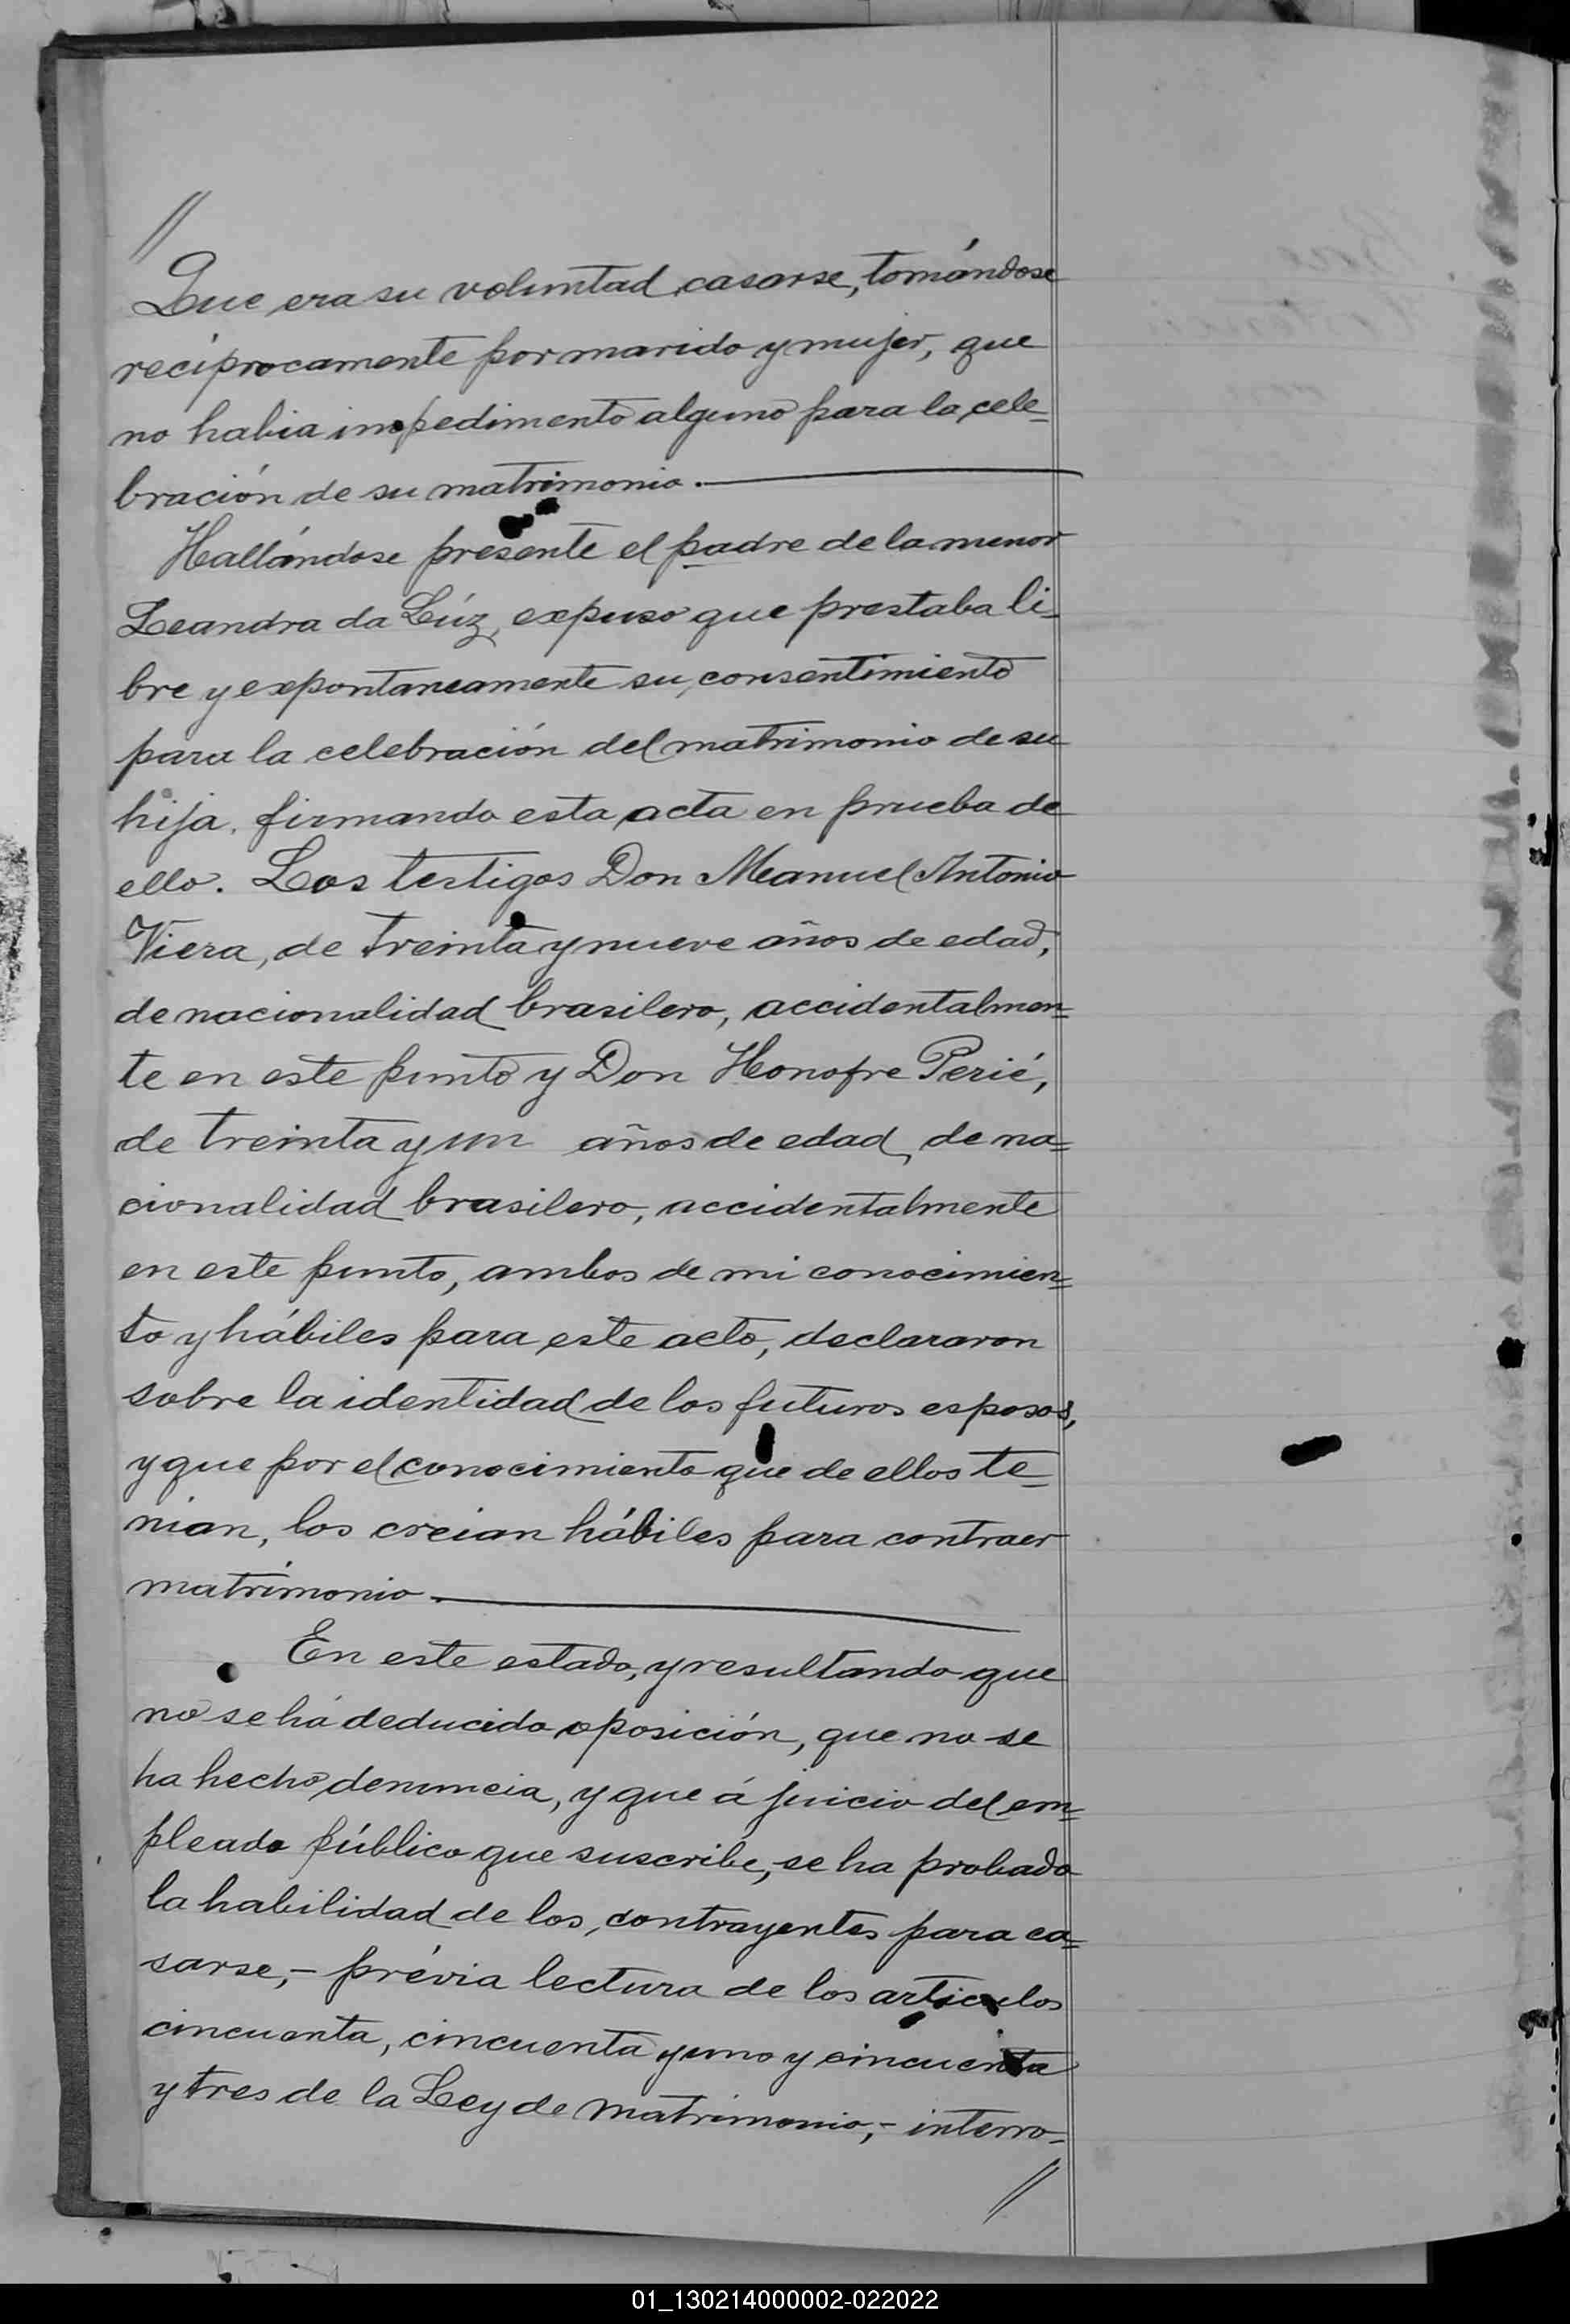 //
Que era su voluntad casarse, tomándose
recíprocamente por marido y mujer, que
no habia impedimento alguno para la cele-
bración de su matrimonio.
Hallándose presente el padre de la menor
Leandra da Lúz, expuso que prestaba li-
bre y expontaneamente su consentimiento
para la celebración del matrimonio de su
hija, firmando esta acta en prueba de
ello. Los testigos Don Manuel Antonio
Viera, de treinta y nueve años de edad,
de nacionalidad brasilero, accidentalmen=
te en este punto y Don Honofre Perié,
de treinta y un años de edad, de na=
cionalidad brasilero, accidentalmente
en este punto, ambos de mi conocimien=
to y hábiles para este acto, declararon
sobre la identidad de los futuros esposos,
y que por el conocimiento que de ellos te=
nian, los creian hábiles para contraer
matrimonio.
En este estado, y resultando que
no se há deducido oposición, que no se
ha hecho denuncia, y que á juicio del em=
pleado público que suscribe, se ha probado
la habilidad de los contrayentes para ca=
sarse,- prévia lectura de los articulos
cincuenta, cincuenta y uno y cincuenta
y tres de la Ley de Matrimonio,- interro-
//
01_130214000002-022022